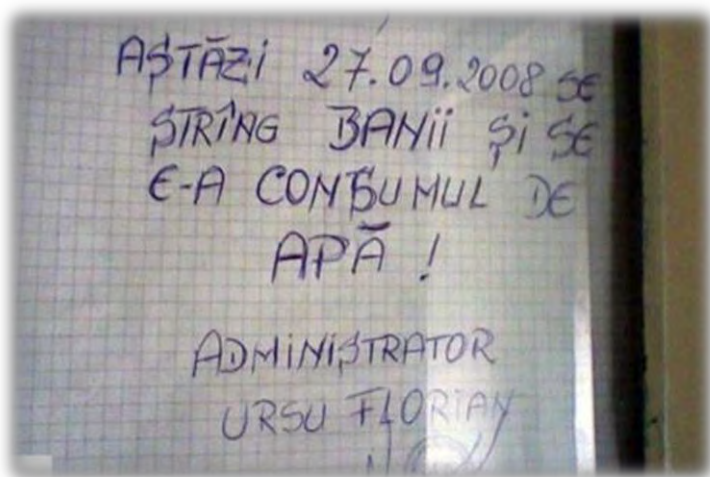 AȘTĂZI 27.09.2008 SE
ȘTRÎNG BANII ȘI SE
E-A CONSUMUL DE
APĂ !
ADMINIȘTRATOR
URSU FLORIAN